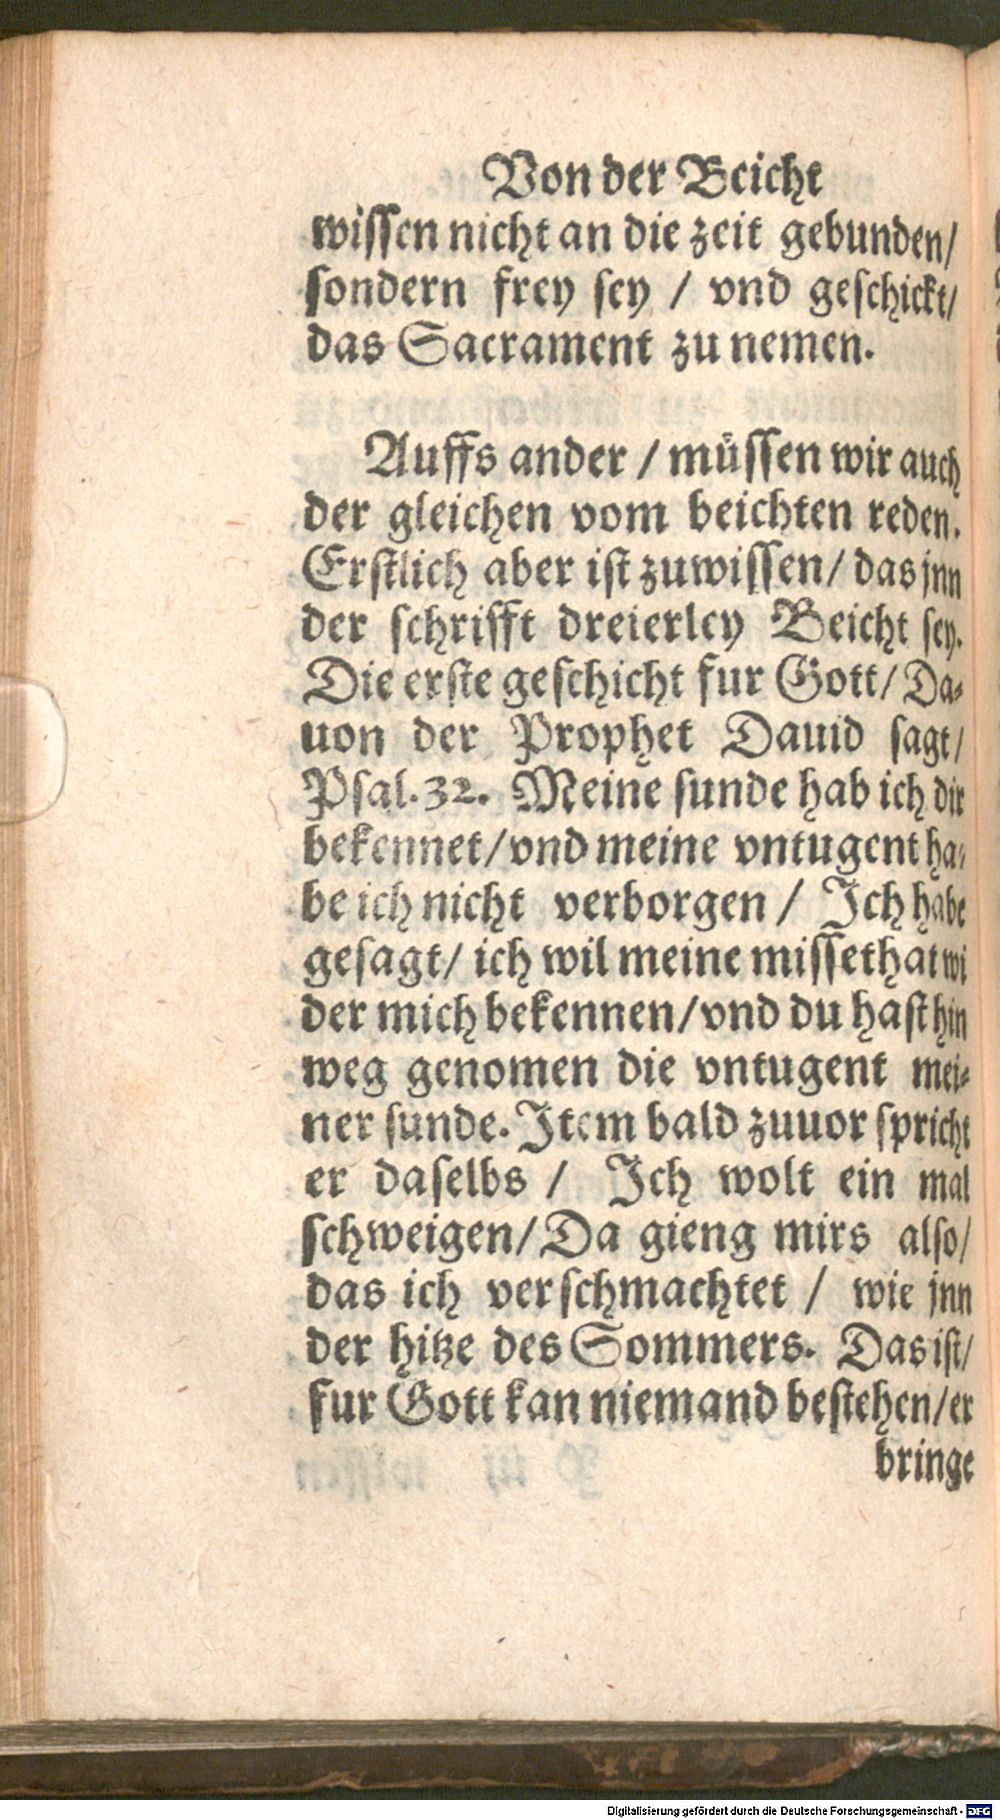 Von der Beicht
wissen nicht an die zeit gebunden/
sondern frey sey / vnd geschickt/
das Sacrament zu nemen.
Auffs ander / müssen wir auch
der gleichen vom beichten reden.
Erstlich aber ist zuwissen/ das jnn
der schrifft dreierley Beicht sey.
Die erste geschicht fur Gott/ Da⸗
uon der Prophet Dauid sagt/
Psal. 32. Meine sunde hab ich dir
bekennet/ vnd meine vntugent ha⸗
be ich nicht verborgen / Ich habe
gesagt/ ich wil meine missethat wi
der mich bekennen/ vnd du hast hin
weg genomen die vntugent mei⸗
ner sunde. Item bald zuuor spricht
er daselbs / Ich wolt ein mal
schweigen/ Da gieng mirs also/
das ich verschmachtet / wie jnn
der hitze des Sommers. Das ist/
fur Gott kan niemand bestehen/ er
bringe
Digitalisierung gefördert durch die Deutsche Forschungsgemeinschaft - DFG